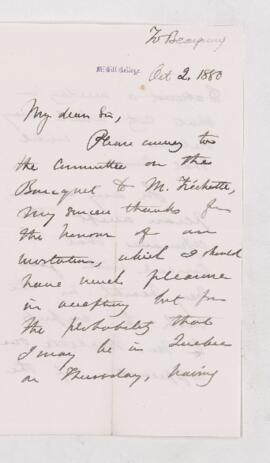 McGill College
Oct 2, 1880
My dear Sir,
Please convey to
the Committee on the
Banquet to M. Fréchette,
my sincere thanks for
the honour of an
invitation, which I should
have much pleasure
in accepting but for
the probability that
I may be in Quebec
on Thursday, having